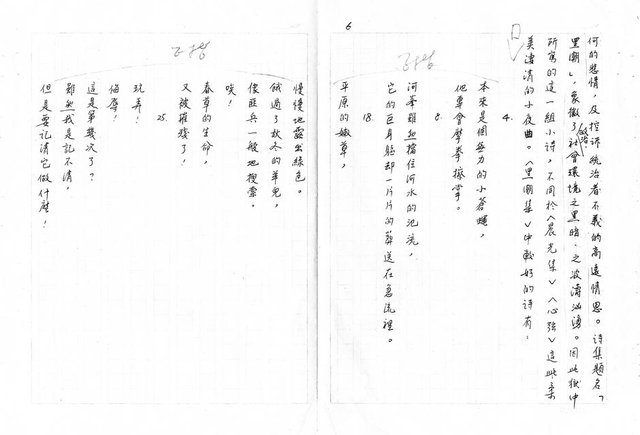 6
何的悲情，及控訴統治者不義的高遠情思。詩集題名「
黑潮」，象徵了政治社會環境之黑暗，之波濤洶湧。因此獄中
所寫的這一組小詩，不同於〈晨光集〉〈心弦〉這些柔
美淒清的小夜曲。〈黑潮集〉中較好的詩有：
4.
本來是個無力的小蒼蠅，
他專會摩拳擦掌。
8.
河本雖想擋住河水的氾流，
它的巨身軀却一片片的葬送在急流裡。
18.
平原的嫩草，
慢慢地露出綠色。
餓過了秋冬的羊兒，
像匪兵一般地搜索。
唉！
春草的生命，
又被摧殘了！
25.
玩弄！
侮辱！
這是第幾次了？
雖然我是記不清，
但是要記清它做什麼！